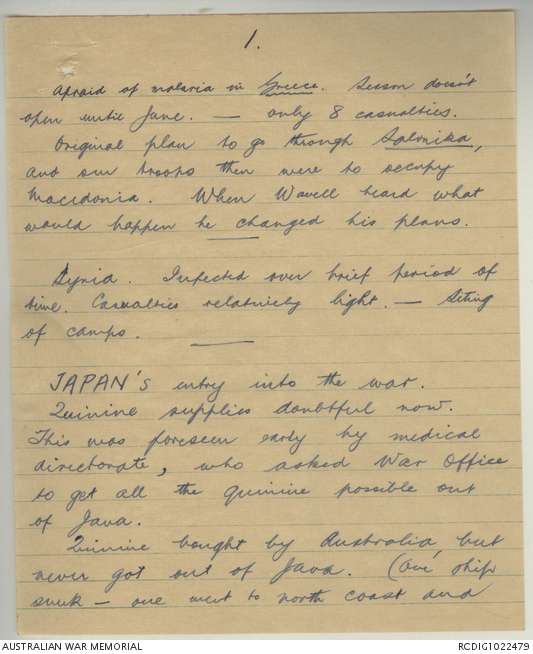 1.
Afraid of malaria in Greece. Season doesn't
open until June. — only 8 casualties.
Original plan to go through Salonika,
and our troops then were to occupy
Macedonia. When Wavell heard what
would happen he changed his plans.
Syria. Infected over brief period of
time. Casualties relatively light. — Siting
of camps.
JAPAN'S entry into the war.
Quinine supplies doubtful now.
This was foreseen early by medical
directorate, who asked War Office
to get all the quinine possible out
of Java.
Quinine bought by Australia but
never got out of Java. (One ship
sunk — one went to north coast and
AUSTRALIAN WAR MEMORIAL
RCDIG1022479